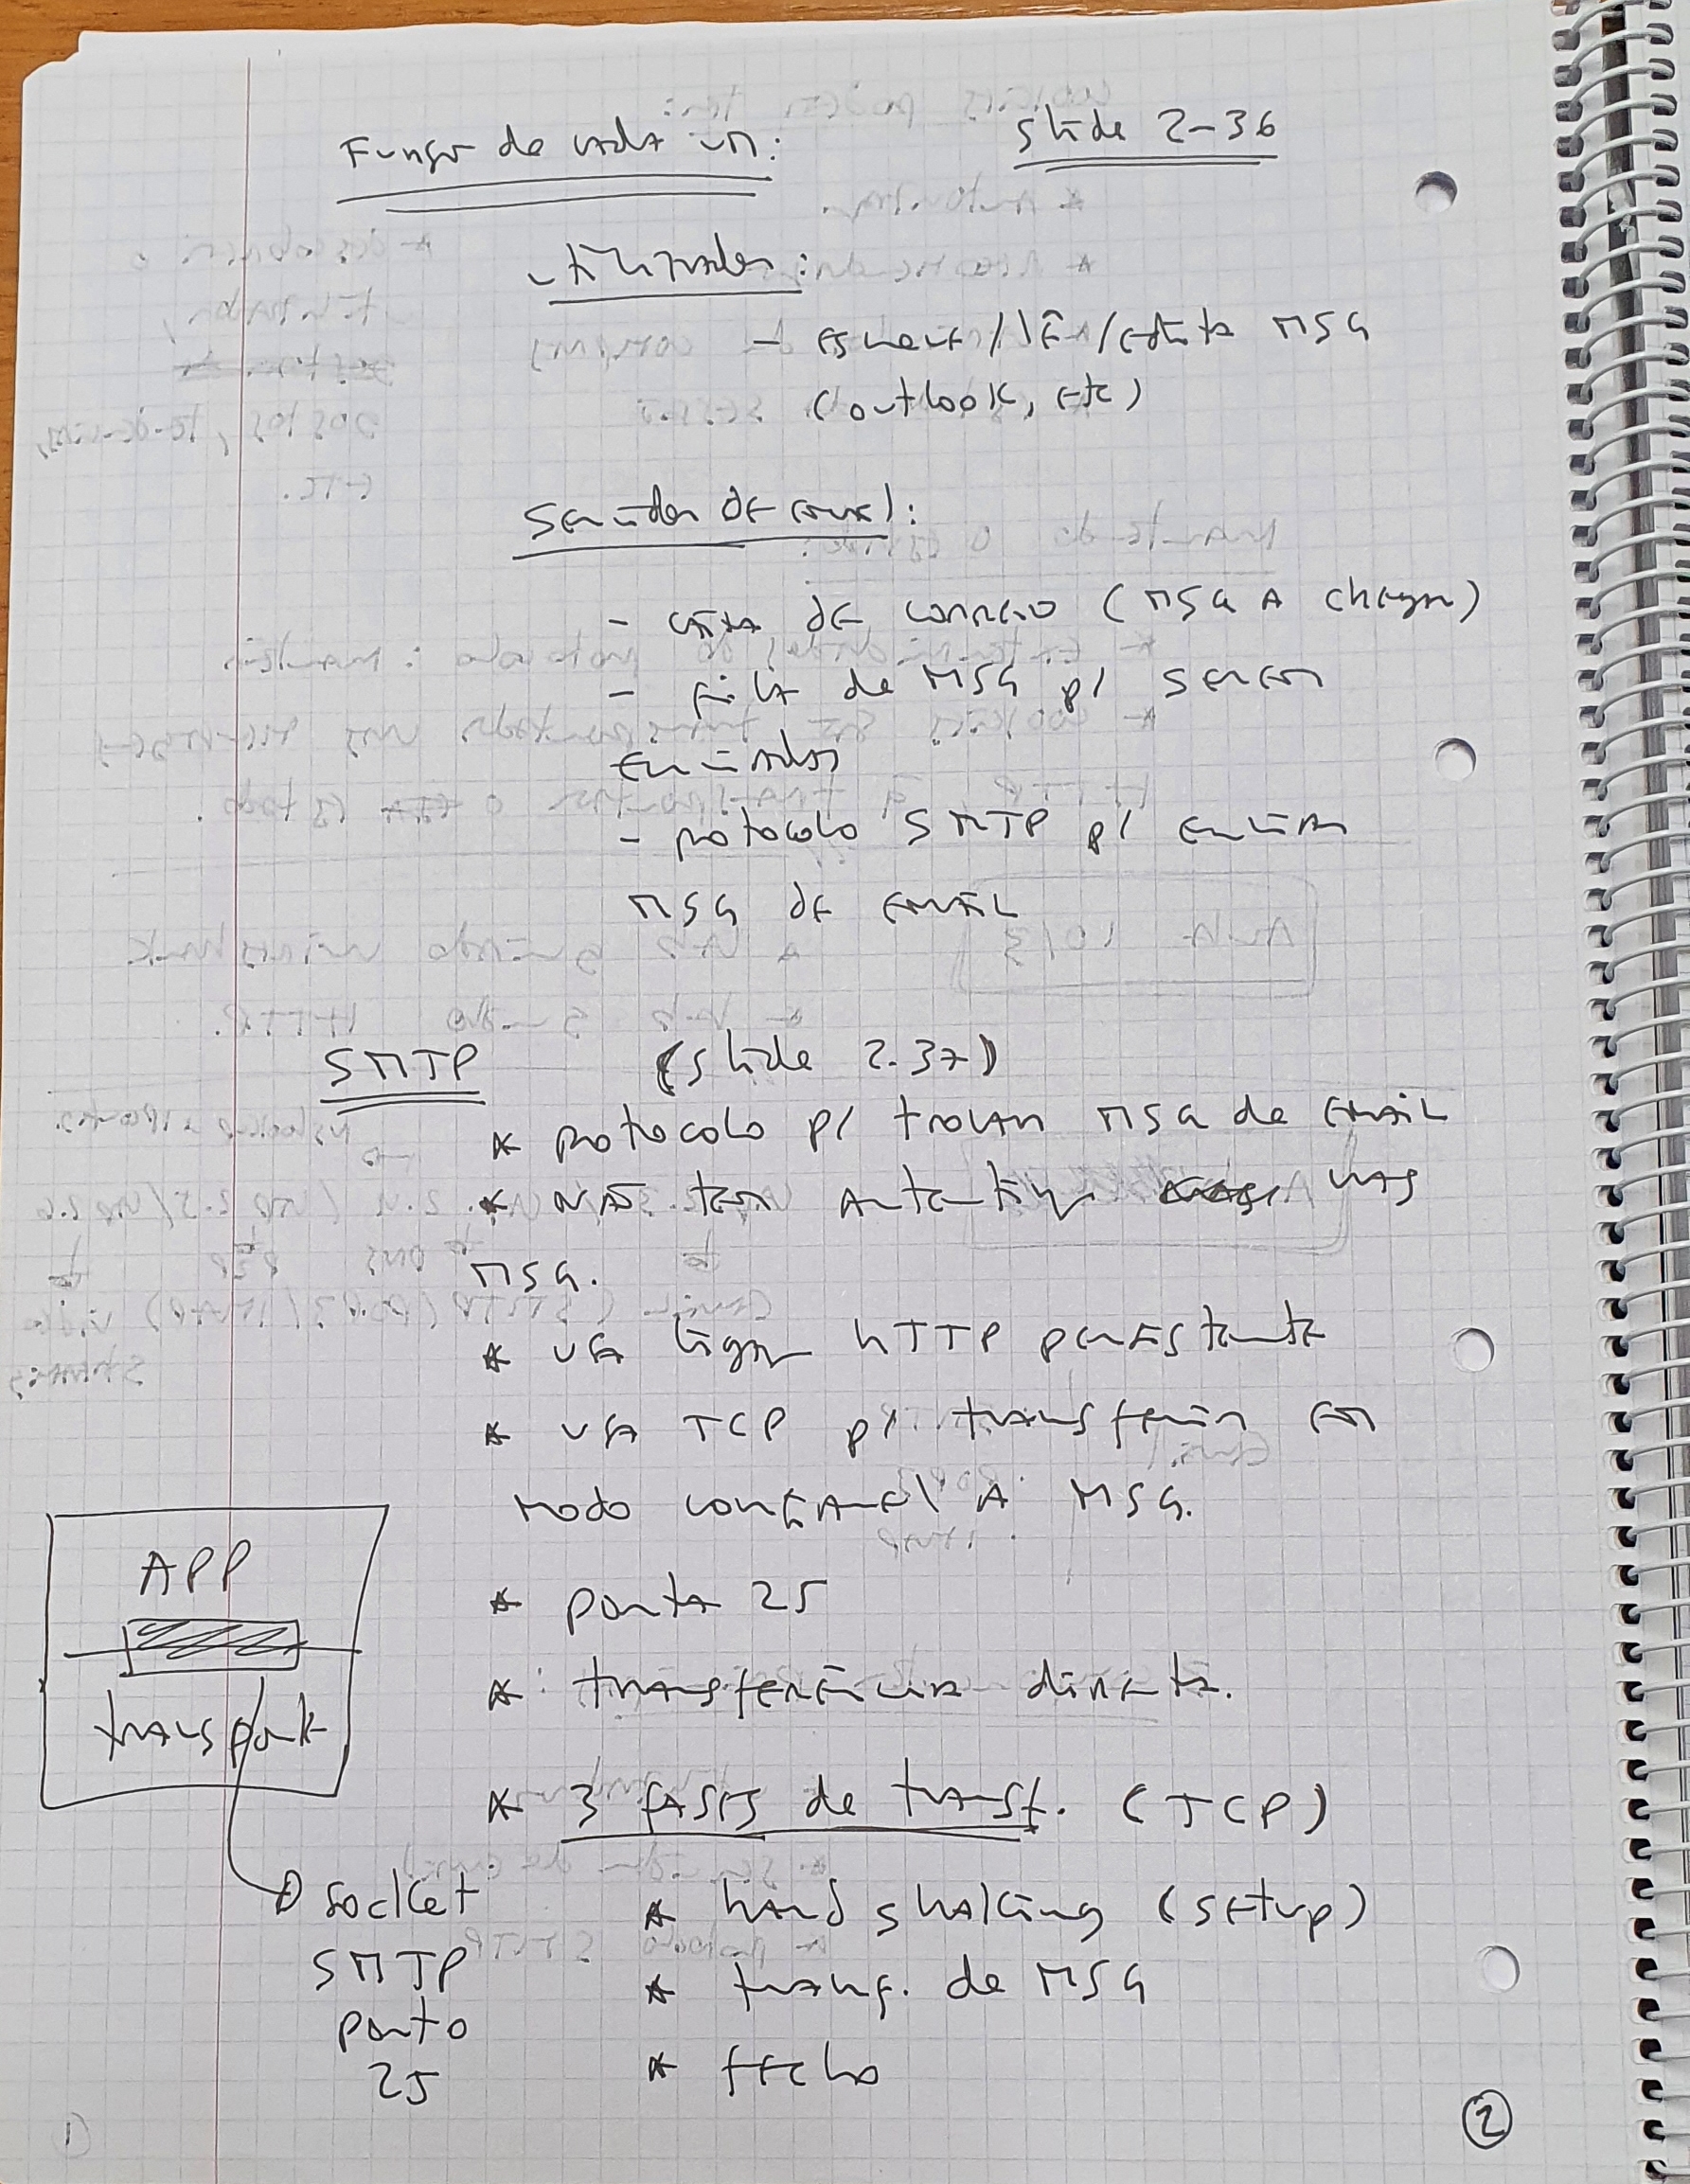 Função de cada um: slide 2-36
utilizador:
- escreve / lê / edita MSG
(outlook, etc)
Servidor de email:
- caixa de correio (MSG a chegar)
- fila de MSG p/ serem
enviadas
- protocolo SMTP p/ enviar
MSG de email
SMTP (slide 2.37)
* protocolo p/ trocar MSG de email
* não tem nas
MSG.
* usa ligação HTTP persistente
* usa TCP p/ transferir em
modo confiável a MSG.
* porta 25
* transferência directa.
* 3 fases de transf. (TCP)
* handshaking (setup)
* transf. de MSG
* fecho
APP
transporte
socket
SMTP
porto
25
2